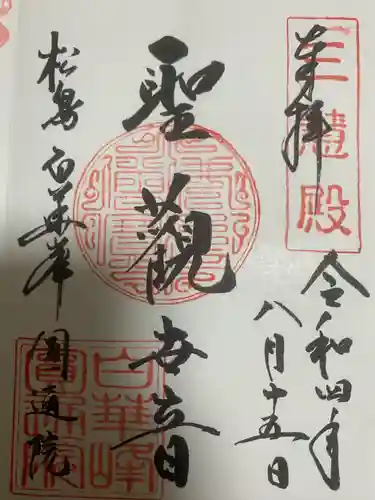 奉拝
三慧殿
令和四年
八月十五日
聖観世音
松島 白華峰 圓通院
白華峰